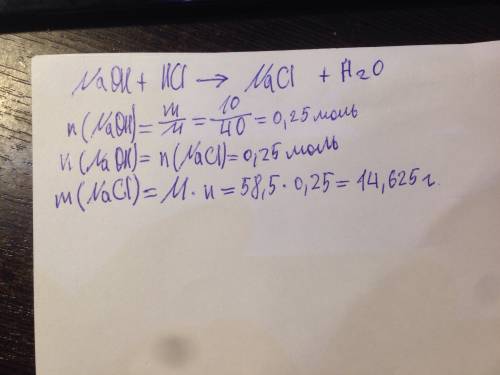 NaOH + HCl → NaCl + H₂O
n(NaOH) = m/M = 10/40 = 0,25 моль
n(NaOH) = n(NaCl) = 0,25 моль
m(NaCl) = M · n = 58,5 · 0,25 = 14,625 г.